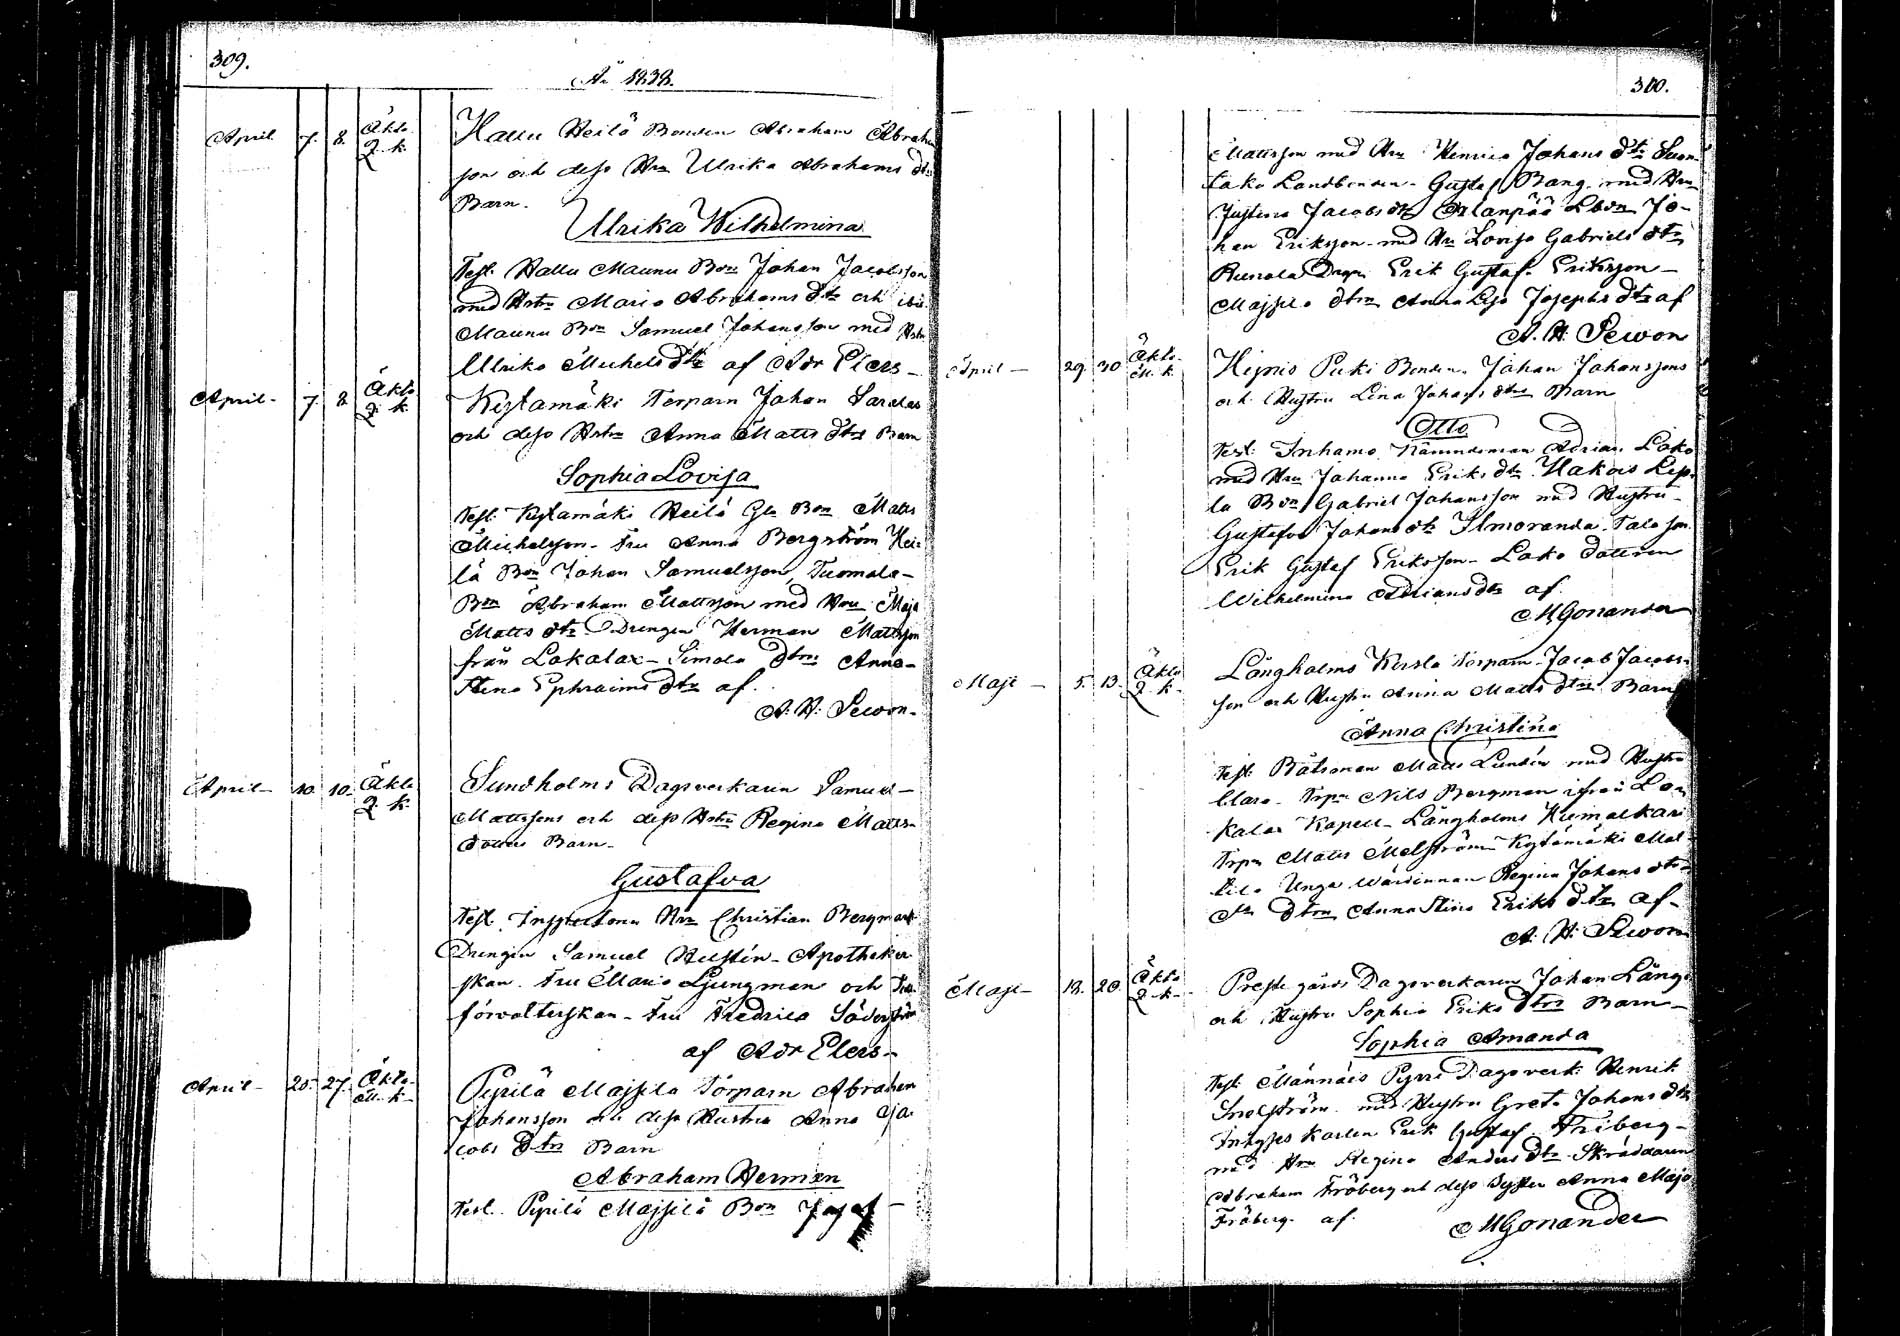 309.
År 1838.
April 7. 8. Äkta Q. k. Hallu Heilä Bonden Abraham Abraham
son och dess Hru Ulrika Abrahams dtr
Barn.
Ulrika Wilhelmina
Test. Hallu Maunu Bon Johan Jacobsson
med Hstr Maria Abrahams dtr och
Maunu Bon Samuel Johansson med Hstr
Ulrika Michels dtr af Adr Elers —
April - 7. 8. Äkta Q. k. Kystamäki Torparn Johan
och dess Hstr Anna Matts dtrs Barn
Sophia Lovisa
Test. Kystamäki Heilä Gla Bon Matts
Michelsson - Fru Anna Bergström Hei-
lä Bon Johan Samuelsson, Tuomala -
Bon Abraham Mattsson med Hru Maja
Matts dtr Drengen Herman Mattsson
från Lokalax - Simola dtrn Anna-
Stina Ephraims dtr af.
A. H. Sewon.
April - 10. 10. Äkta Q. k. Sundholms Dagsverkarin Samuel -
Mattssons och dess Hstr Regina Matts-
dotters Barn -
Gustafva
Test. Inspectorn Hrr Christian Bergmark
Drengen Samuel Hellstén - Apotheker-
skan Fru Maria Ljungman och
förvalterskan - Fru Fredrica Söderström
af Adr Elers -
April - 20. 27. Äkta. M. k. Pyrilä Majssila Torparn Abraham
Johansson och dess Hustru Anna Ja-
cobs dtrs Barn
Abraham Herman
Test. Pyrilä Majssila Bon Josef -
300.
Mattsson med Hru Henrica Johans dtr Suon-
taka Landbonden - Gustaf Bang med Hru
Justina Jacobs dtr Lbon Jo-
han Eriksson - med Hru Lovisa Gabriels dtr
Drgn Erik Gustaf Eriksson -
Majssila dtrn Anna Lisa Josephs dtr af
A. H. Sewon
April - 29. 30. Äkta. M. k. Puki Bonden Johan Johanssons
och Hustru Lina Johans dtrs Barn
Otto
Test. Inhamo Nämndeman Adrian Lako
med Hru Johanna Eriks dtr Hakois Lep-
la Bon Gabriel Johansson med Hustru -
Gustafva Johans dtr Ilmoranda Talo son
Erik Gustaf Eriksson - Lako dottren
Wilhelmina Adrians dtr af
M Gonander
Maji - 5. 13. Äkta Q. k. Långholms Torparn Jacob Jacobs-
son och Hustru Anna Matts dtrs Barn
Anna Christina
Test. Båtsman Matts Lundén med Hustru
Clara - Trpn Nils Bergman ifrån Lo-
kalax Kapell - Långholms
Trpn Matts Malström Kystämäki Mat-
tila Unga Wärdinnan Regina Johans dtr
dtrn Anna Stina Eriks dtr af -
A. H. Sewon
Maji - 18. 20. Äkta Q. k. Prestgårds Dagsverkaren Johan Lång
och Hustru Sophia Eriks dtrs Barn -
Sophia Amanda
Test. Männäis Pyrri Dagsverk. Henrik
med Hustru Greta Johans dtr
Karlen Erik Gustaf Friberg -
med Hru Regina Anders dtr Skräddaren
Abraham Fröberg och dess Syster Anna Maja
Fröberg. af. M Gonander